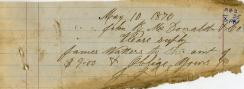 May 10, 1870
John B. McDonald
Please supply
James Watters to the amt of
$9.00 & oblige Yours